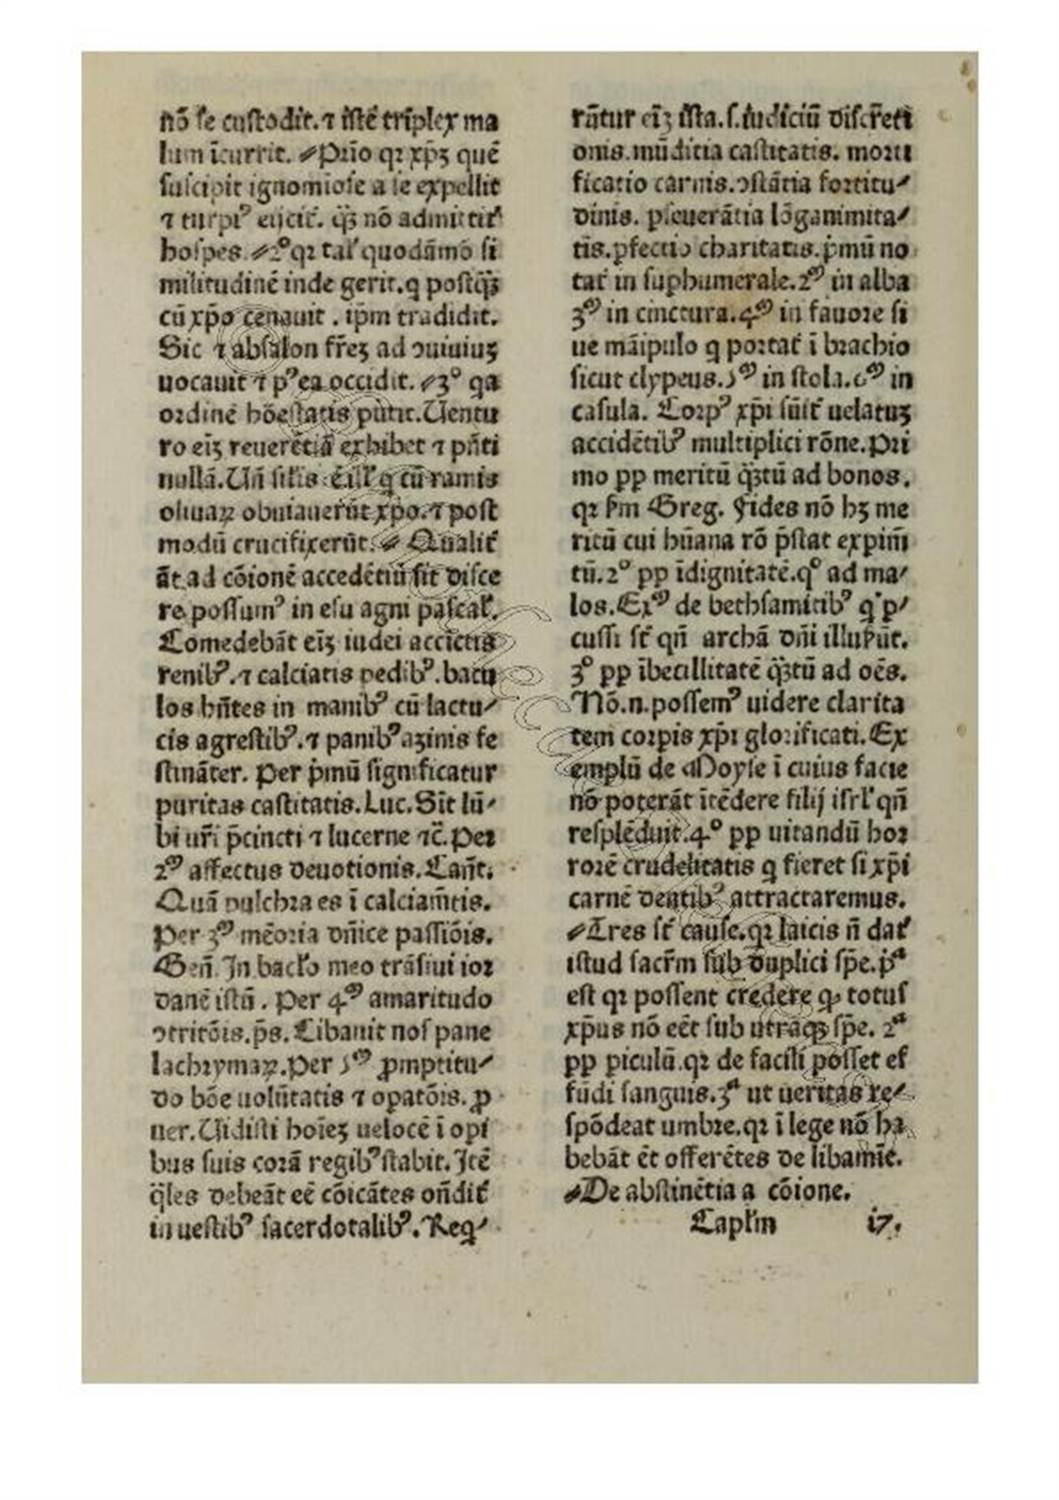 nō se custodit. ⁊ istē triplex ma
lum īcurrit. Prīo qꝛ xp̄ꝫ quē
suscipit ignomiose a se expellit
⁊ turpiꝰ eijcit̄. qͣꝫ nō admittit̄
hospes. 2ͦ qꝛ tal̄ quodāmō si
militudinē inde gerit. q postqͣꝫ
cū xp̄o cenauit. ip̄m tradidit.
Sic ⁊ absalon fr̄eꝫ ad ꝯuiuiuꝫ
uocauit ⁊ pꝰea occidit. 3ͦ qa
ordinē hōestatis ꝑutit. Uentu
ro eiꝫ reuerētiā exhibet ⁊ pn̄ti
nullā. Un̄ sil̄is ē ill̄ q cū ramis
oliuaꝝ obuiauerūt xp̄o. ⁊ post
modū crucifixerūt. Qualit̄
āt ad cōionē accedētiū sit disce
re possumꝰ in esu agni pascal̄.
Comedebāt eiꝫ iudei accictis
renibꝰ. ⁊ calciatis pedibꝰ. bacu
los hn̄tes in manibꝰ cū lactu
cis agrestibꝰ. ⁊ panibꝰ azinis fe
stināter. Per p̄mū significatur
puritas castitatis. Luc. Sīt lū
bi ur̄i p̄cincti ⁊ lucerne ⁊c̄. Per
2ᵐ affectus deuotionis. Can̄t.
Quā pulchra es ī calciam̄tis.
Per 3ᵐ mēoria dn̄ice passiōis.
Gen̄. In bacl̄o meo trāsiui ior
danē istū. Per 4ᵐ amaritudo
ꝯtritōis. ps̄. Cibauit nos pane
lachrymaꝝ. Per 5ᵐ ꝓmptitu
do bōe uolūtatis ⁊ opatōis. ꝓ
uer. Uidisti hoīeꝫ uelocē ī opi
bus suis corā regibꝰ stabit. Itē
q̄les debeāt eē cōicātes on̄dit̄
in uestibꝰ sacerdotalibꝰ. Req
rātur eiꝫ ista. s. iudiciū discreti
onis. mūditia castitatis. morti
ficatio carnis. ꝯstātia fortitu
dinis. ꝑseuerātia lōganimita
tis. ꝑfectio charitatis. p̄mū no
tat̄ in suphumerale. 2ᵐ in alba
3ᵐ in cinctura. 4ᵐ in fauore si
ue māipulo q portat̄ ī brachio
sicut clypeus. 5ᵐ in stola. 6ᵐ in
casula. Corpꝰ xp̄i sūit̄ uelatuꝫ
accidētibꝰ multiplici rōne. Pri
mo pp meritū qͣꝫtū ad bonos.
qꝛ s̄m Greg. Fides nō hꝫ me
ritū cui hūana rō p̄stat expim̄
tū. 2ͦ pp īdignitatē. qͦ ad ma
los. Exᵐ de bethsamitibꝰ q p
cussi st̄ qn̄ archā dn̄i
3ͦ pp ībecillitatē qͣꝫtū ad oēs.
Nō. n. possemꝰ uidere clarita
tem corpis xp̄i glorificati. Ex
emplū de Moyse ī cuius facie
nō poterāt ītēdere filij isrl̄ qn̄
resplēduit. 4ͦ pp uitandū hor
rorē crudelitatis q fieret si xp̄i
carnē dentibꝰ attractaremus.
Tres st̄ cause. qꝛ laicis n̄ dat̄
istud sacr̄m sub duplici sp̄e. pͣ
est qꝛ possent credere ꝙ totus
xp̄us nō eēt sub utrāqꝫ sp̄e. 2ͣ
pp piculū. qꝛ de facili posset ef
fūdi sanguis. 3ͣ ut ueritas re
spōdeat umbre. qꝛ ī lege nō ha
bebāt ēt offerētes de libamīe.
De abstinētia a cōione.
Capl̄m 17.